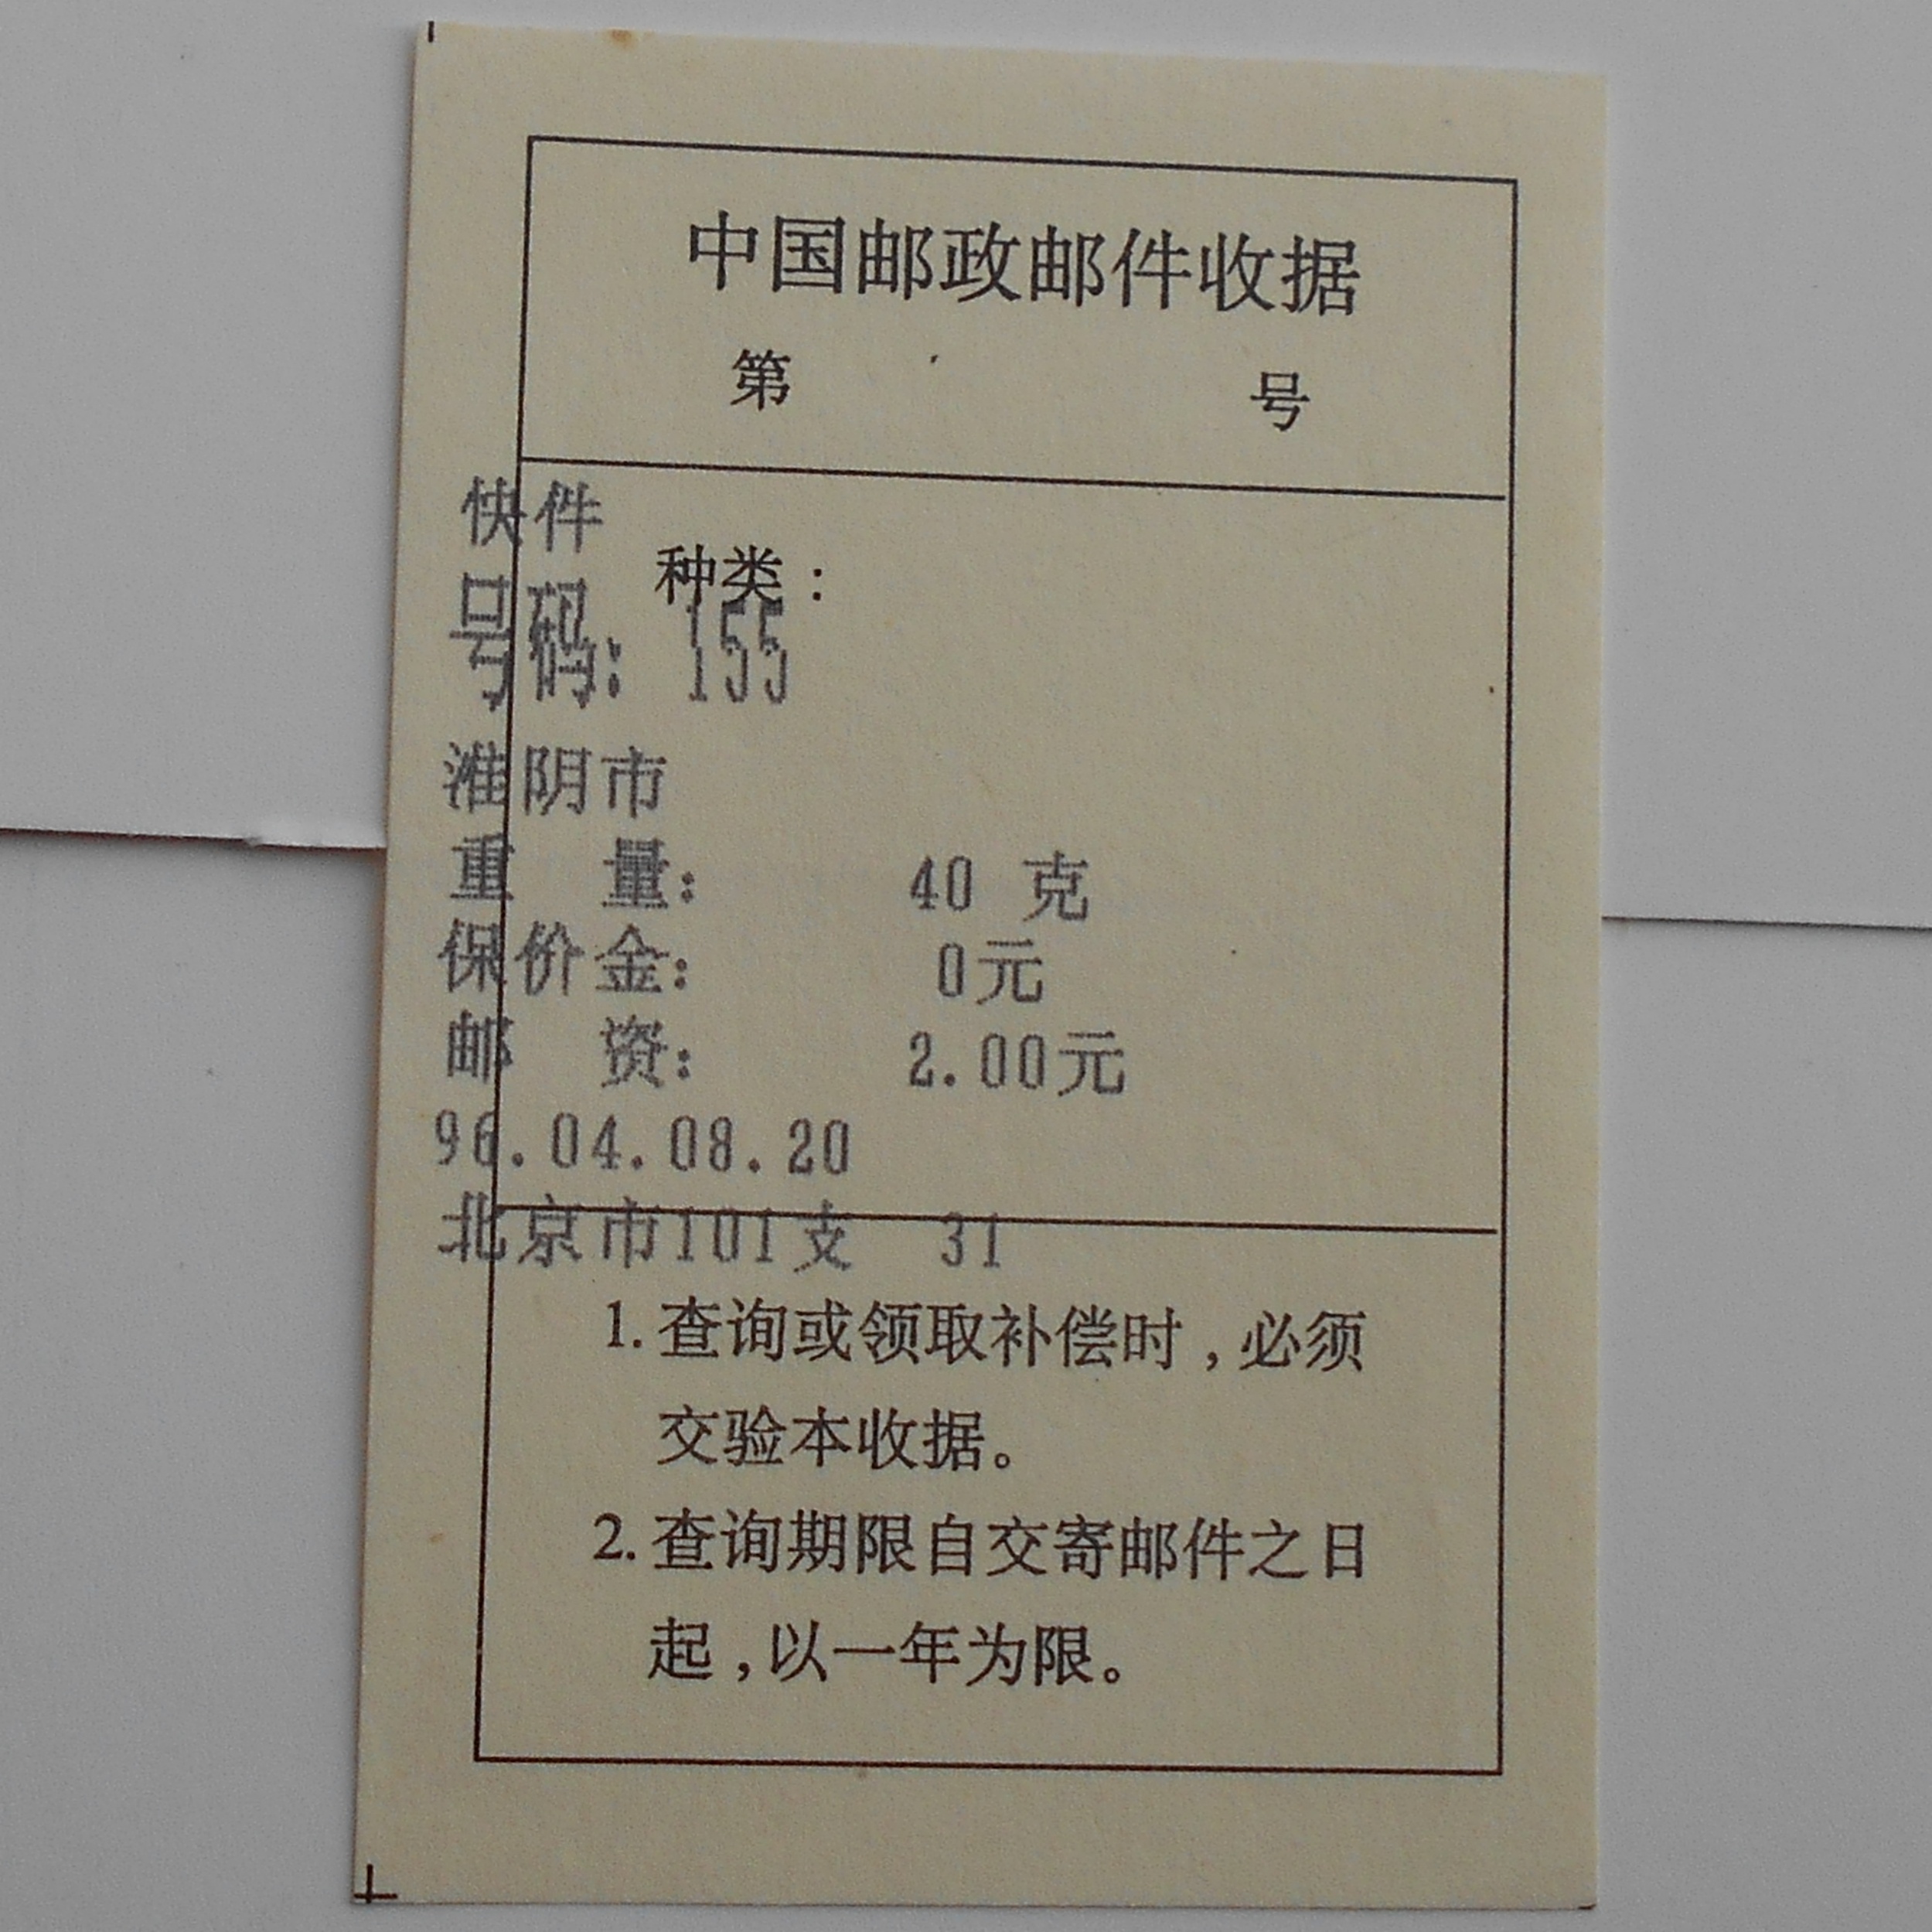 中国邮政邮件收据
第 号
快件
种类：
号码: 155
淮阴市
重 量: 40 克
保价金: 0元
邮 资: 2.00元
96.04.08.20
北京市101支 31
1. 查询或领取补偿时，必须
交验本收据。
2. 查询期限自交寄邮件之日
起，以一年为限。